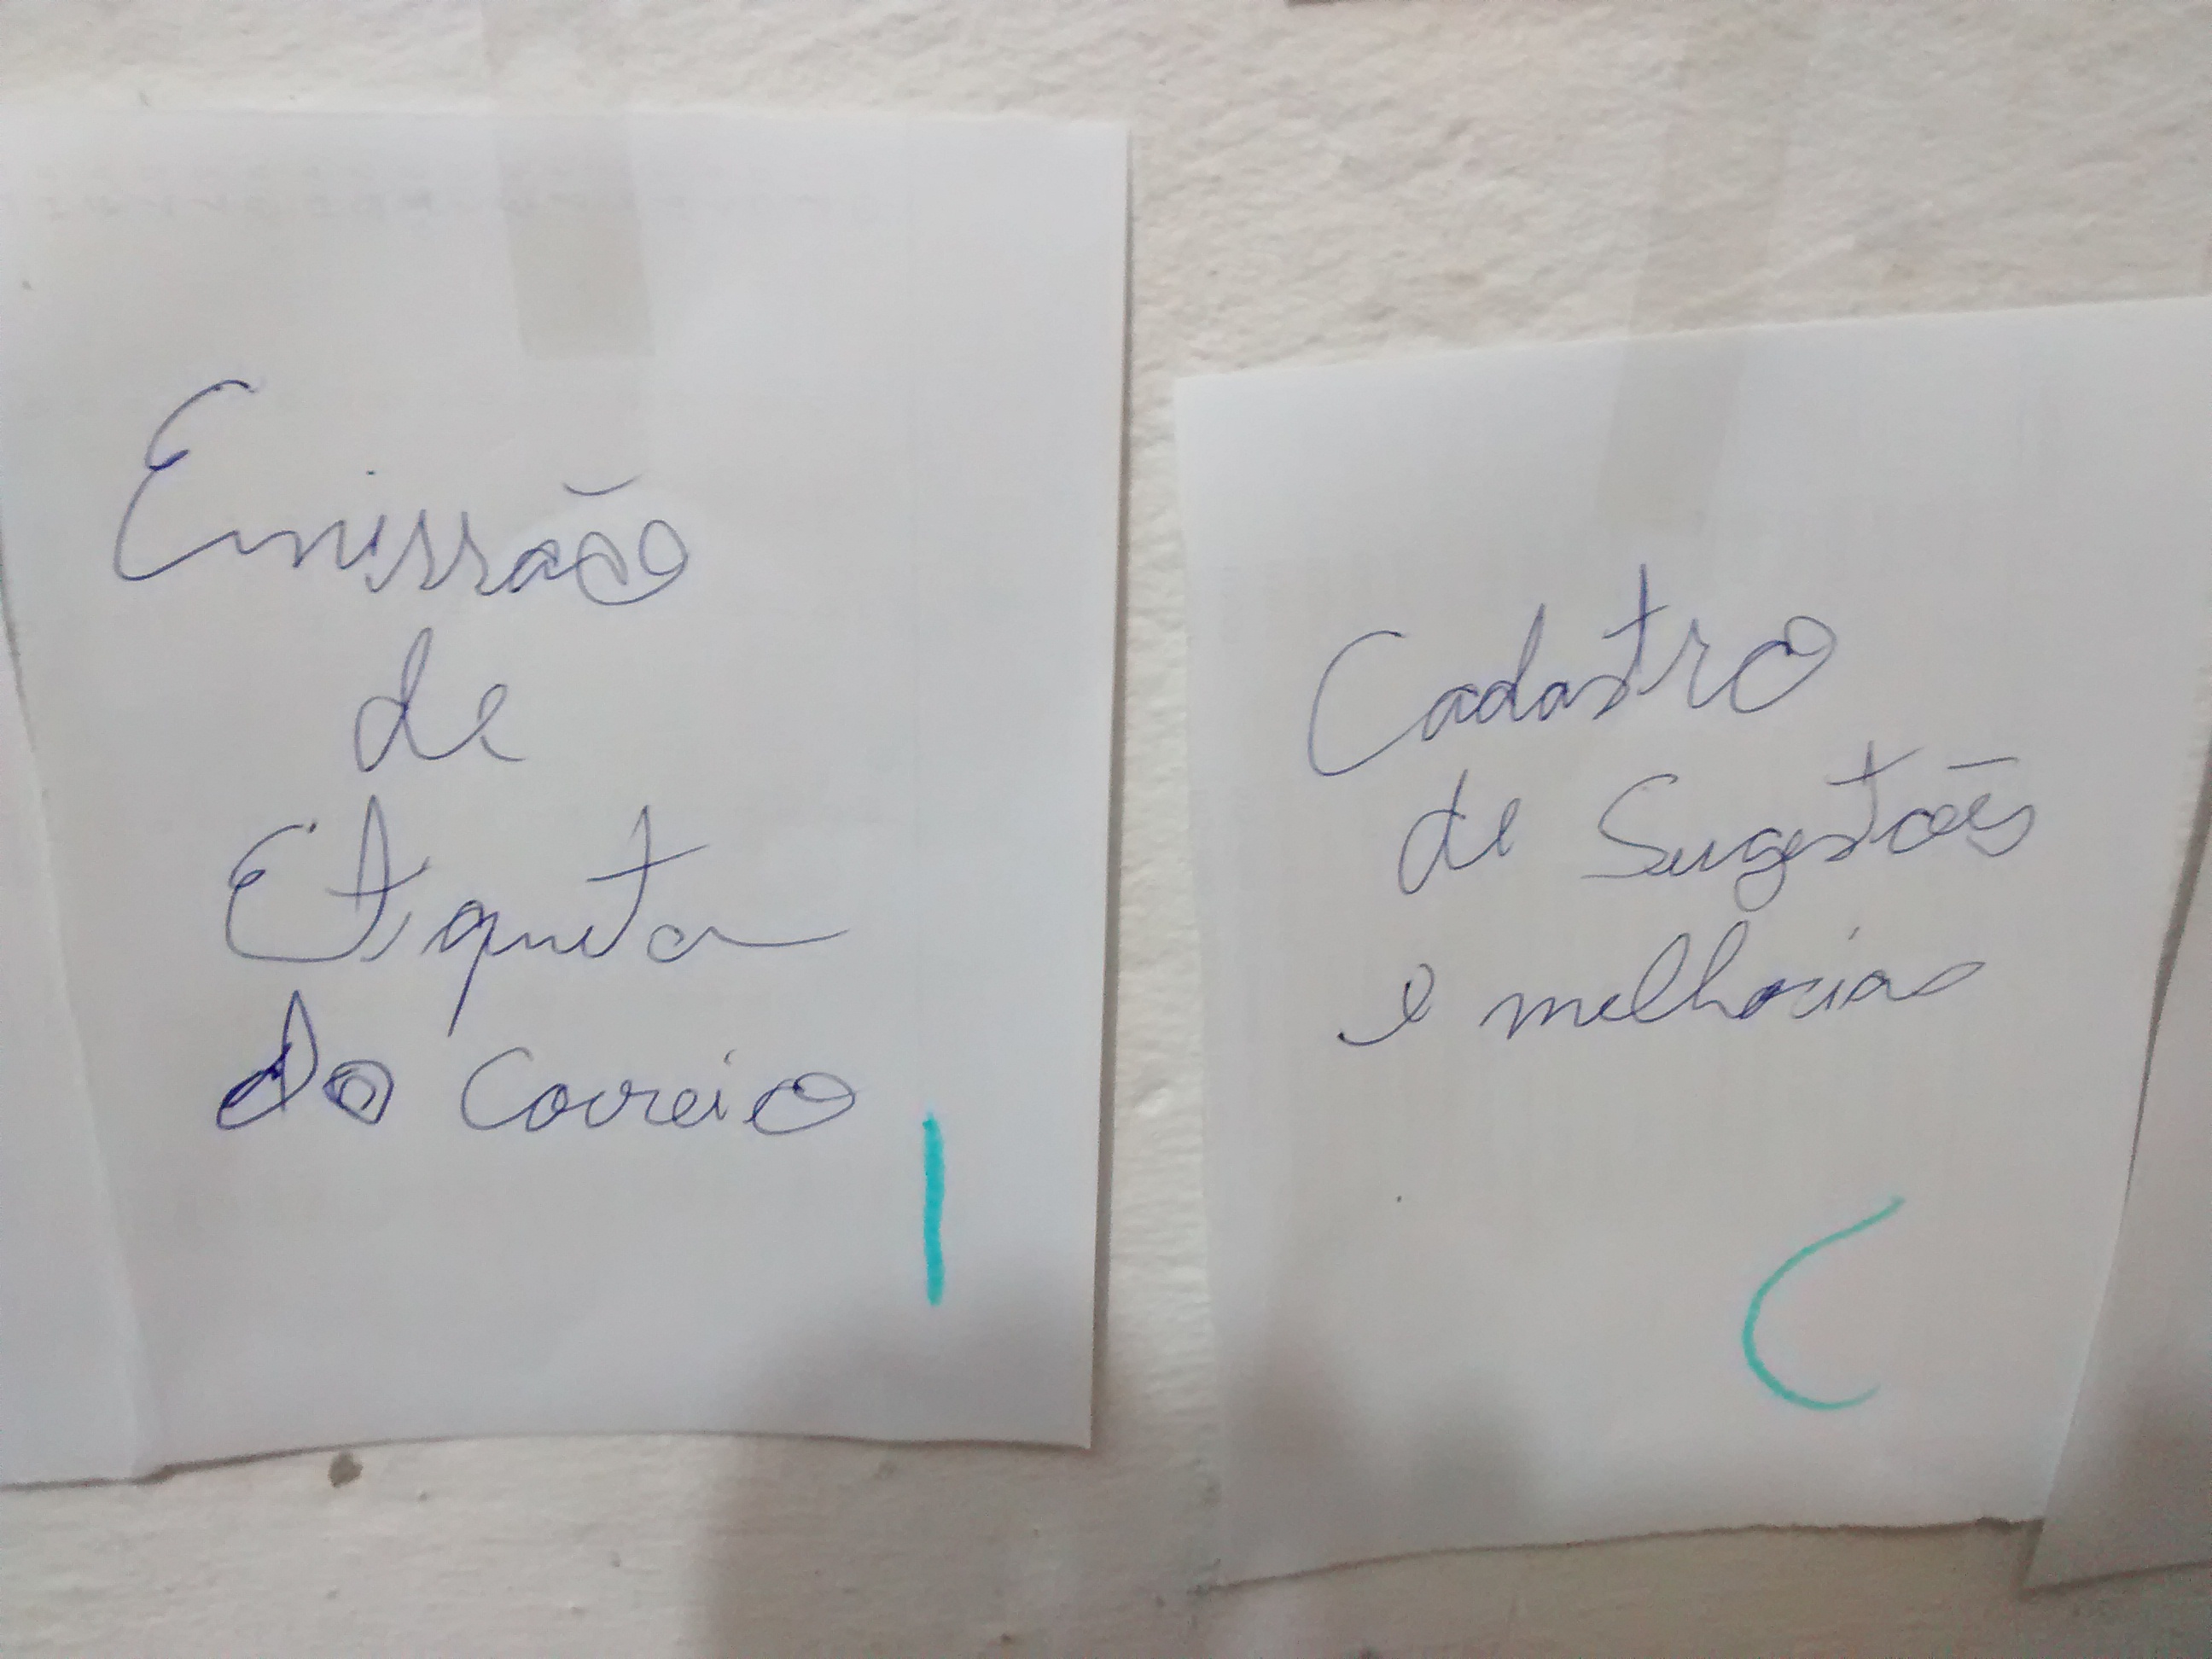 Emissão
de
Etiqueta
do Correio
I
Cadastro
de Sugestões
e melhorias
C